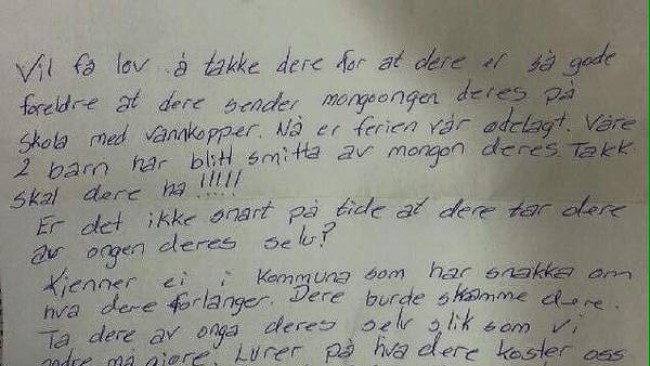 Vil få lov å takke dere for at dere er så gode
foreldre at dere sender mongoongen deres på
skola med vannkopper. Nå er ferien vår ødelagt. Våre
2 barn har blitt smitta av mongon deres. Takk
skal dere ha!!!!!
Er det ikke snart på tide at dere tar dere
av ongen deres selv?
Kjenner ei i kommuna som har snakka om
hva dere forlanger. Dere burde skamme dere.
Ta dere av onga deres selv slik som vi
andre må gjøre. Lurer på hva dere koster oss